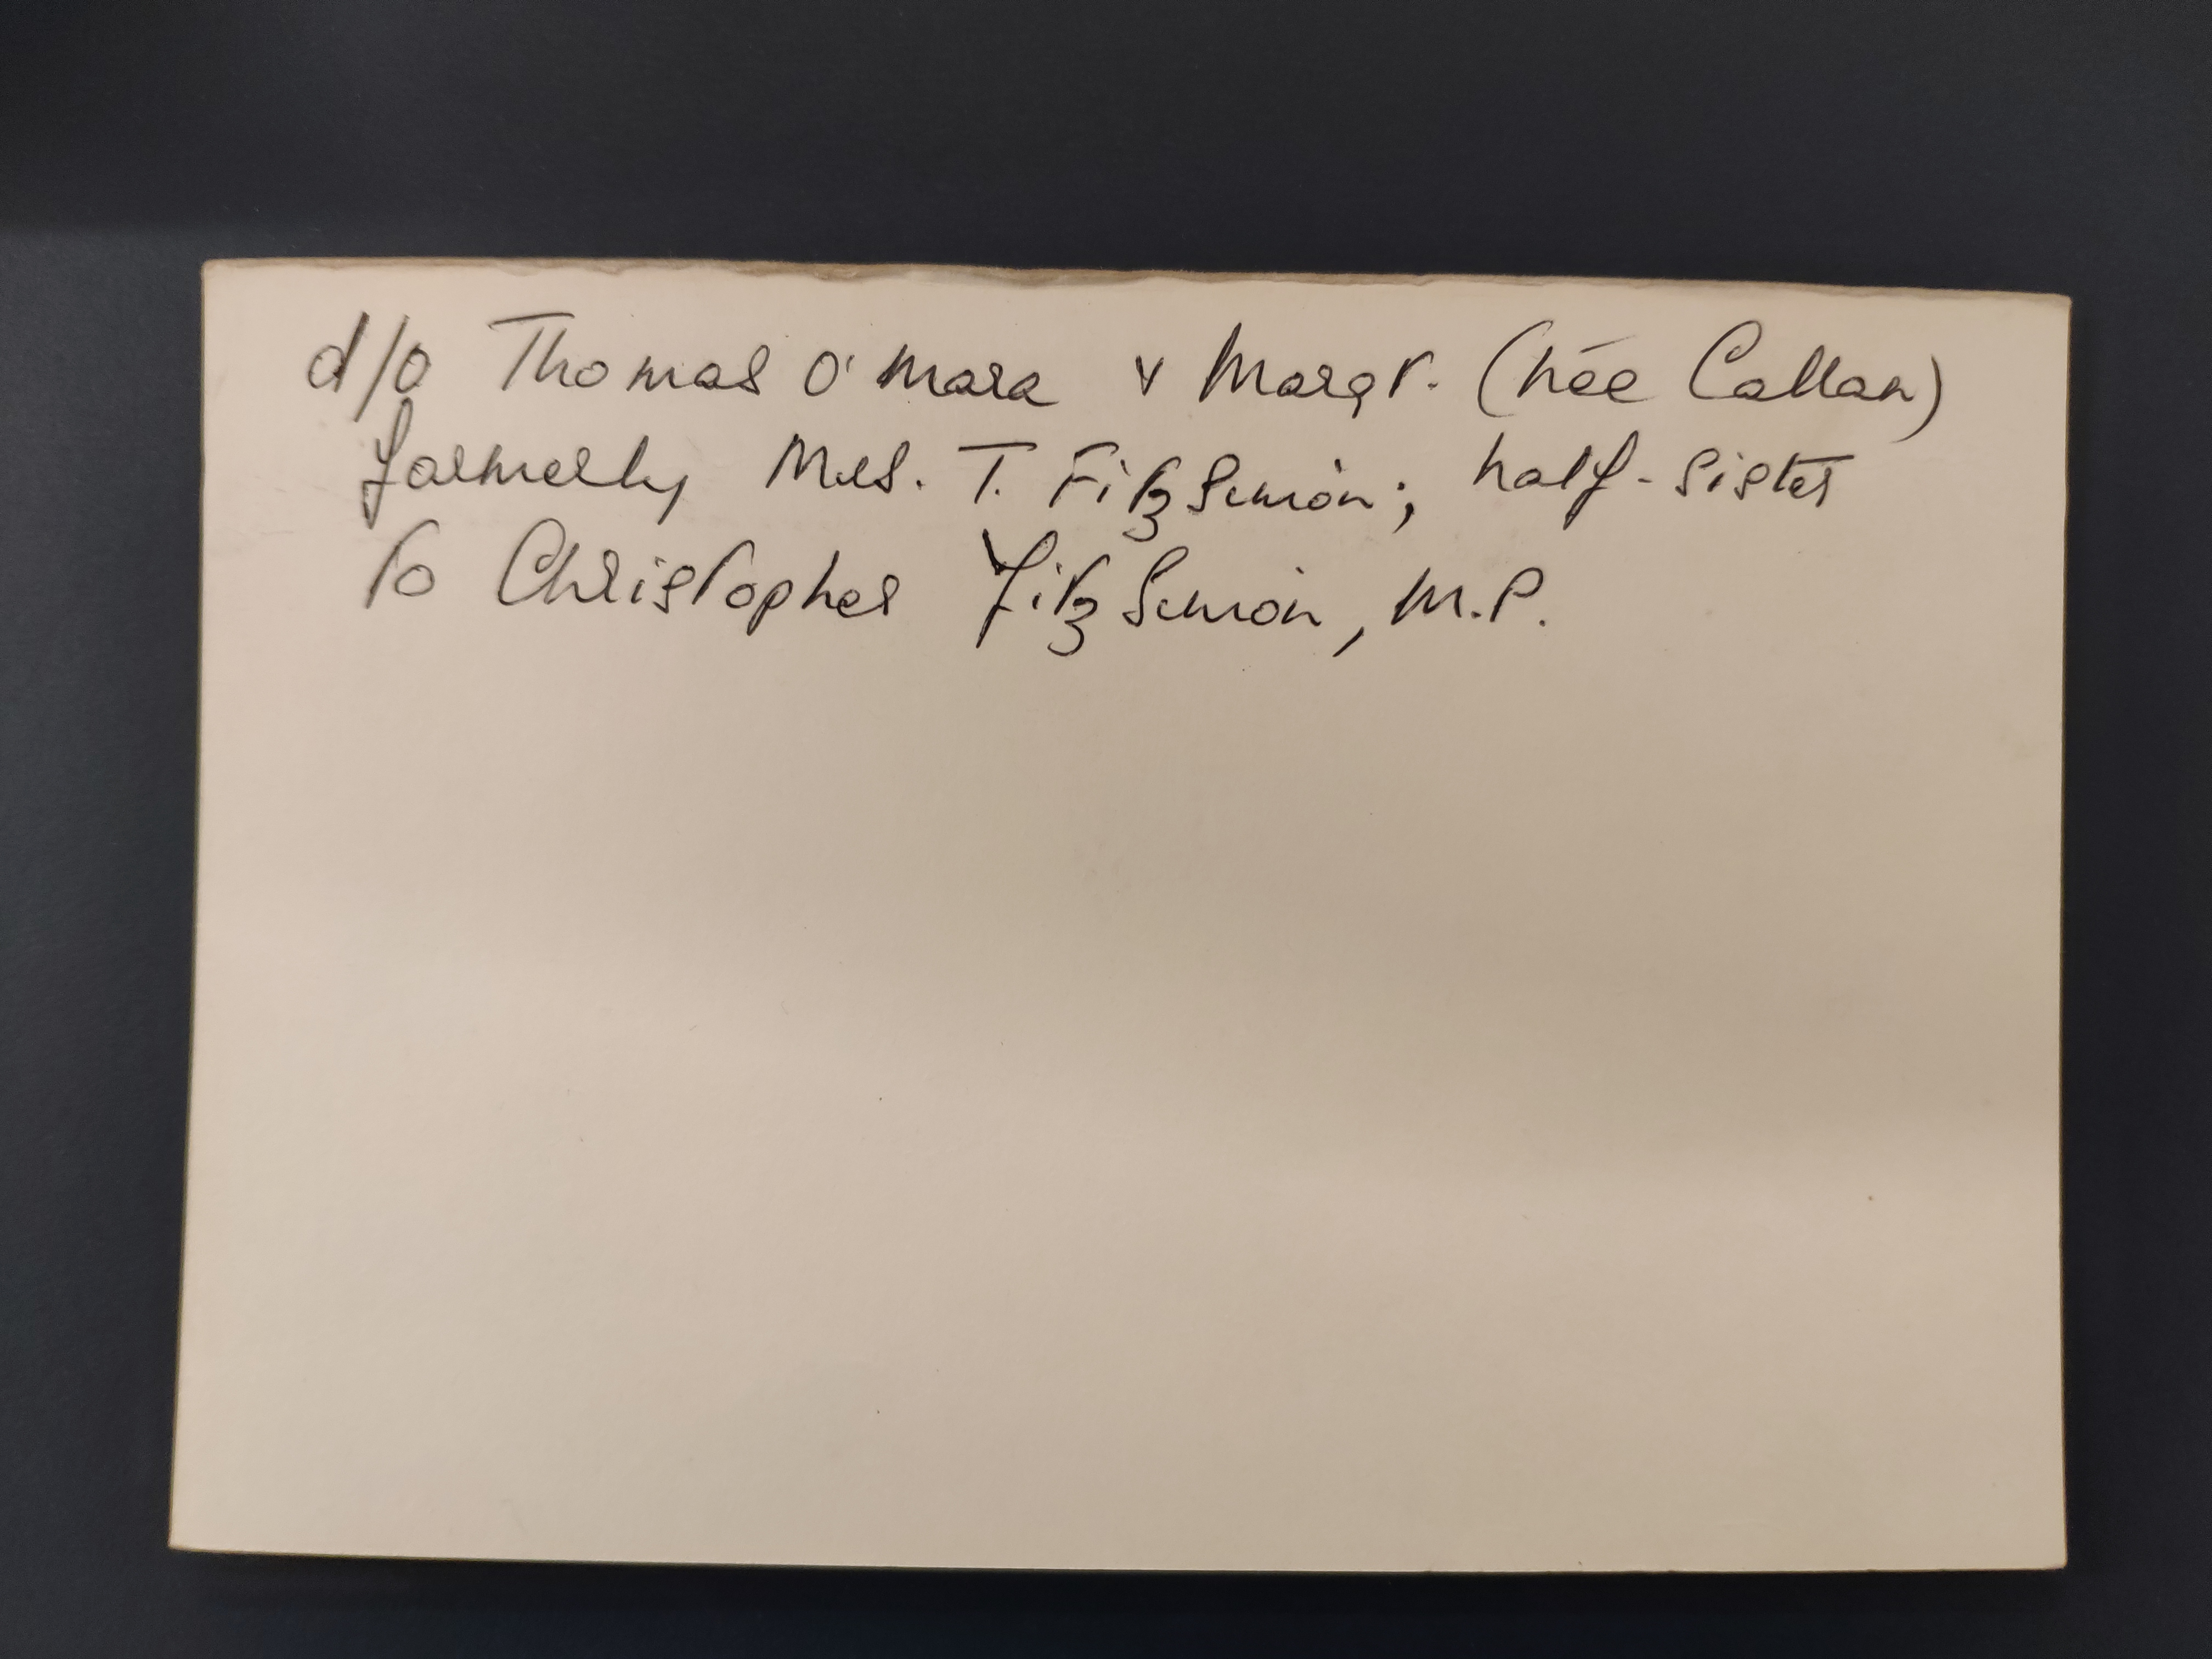 d/o Thomas O'Mara & Margt. (née Callan)
formerly Mrs. T. FitzSimon; half-sister
to Christopher FitzSimon, M.P.